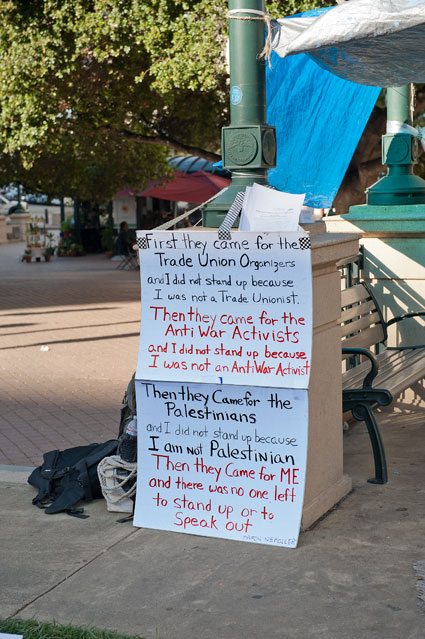 First they came for the
Trade Union Organizers
and I did not stand up because
I was not a Trade Unionist.
Then they came for the
Anti War Activists
and I did not stand up because
I was not an Anti War Activist
Then they Came for the
Palestinians
and I did not stand up because
I am not Palestinian
Then they Came for ME
and there was no one left
to stand up or to
Speak out